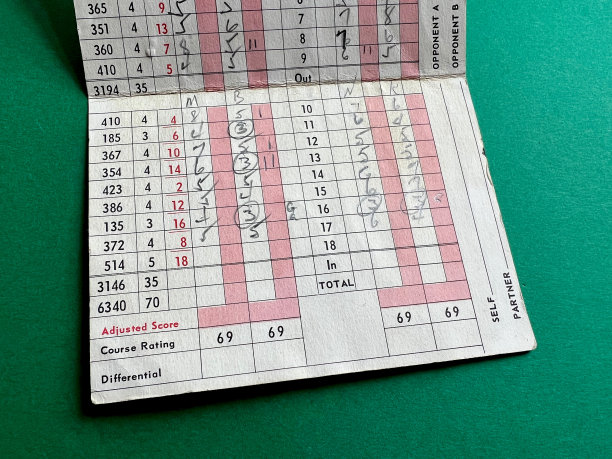 365 4 9 5
351 4 13 5 6 7 7 8
360 4 7 8 5 11 8 7 6
410 4 5 5 9 6 11 5
3194 35 Out
OPPONENT A
OPPONENT B
M B N K
410 4 4 8 5 1 10 7 6
185 3 6 4 3 11 6 4
367 4 10 7 5 1 12 5 5
354 4 14 6 3 11 13 5 5
423 4 2 5 5 14 6
386 4 12 15 6
135 3 16 3 16 3 3
372 4 8 5 5 17 6 4
514 5 18 18
3146 35 In
6340 70 TOTAL
Adjusted Score
Course Rating 69 69 69 69
Differential
SELF
PARTNER